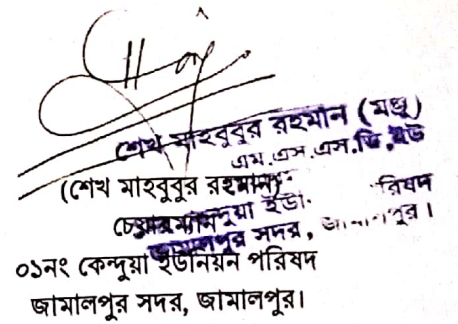 শেখ মাহবুবুর রহমান (মঞ্জু)
এম.এস.এস.ডি.ইউ
(শেখ মাহবুবুর রহমান)
চেয়ারম্যান
সদর,
০১নং কেন্দুয়া ইউনিয়ন পরিষদ
জামালপুর সদর, জামালপুর।